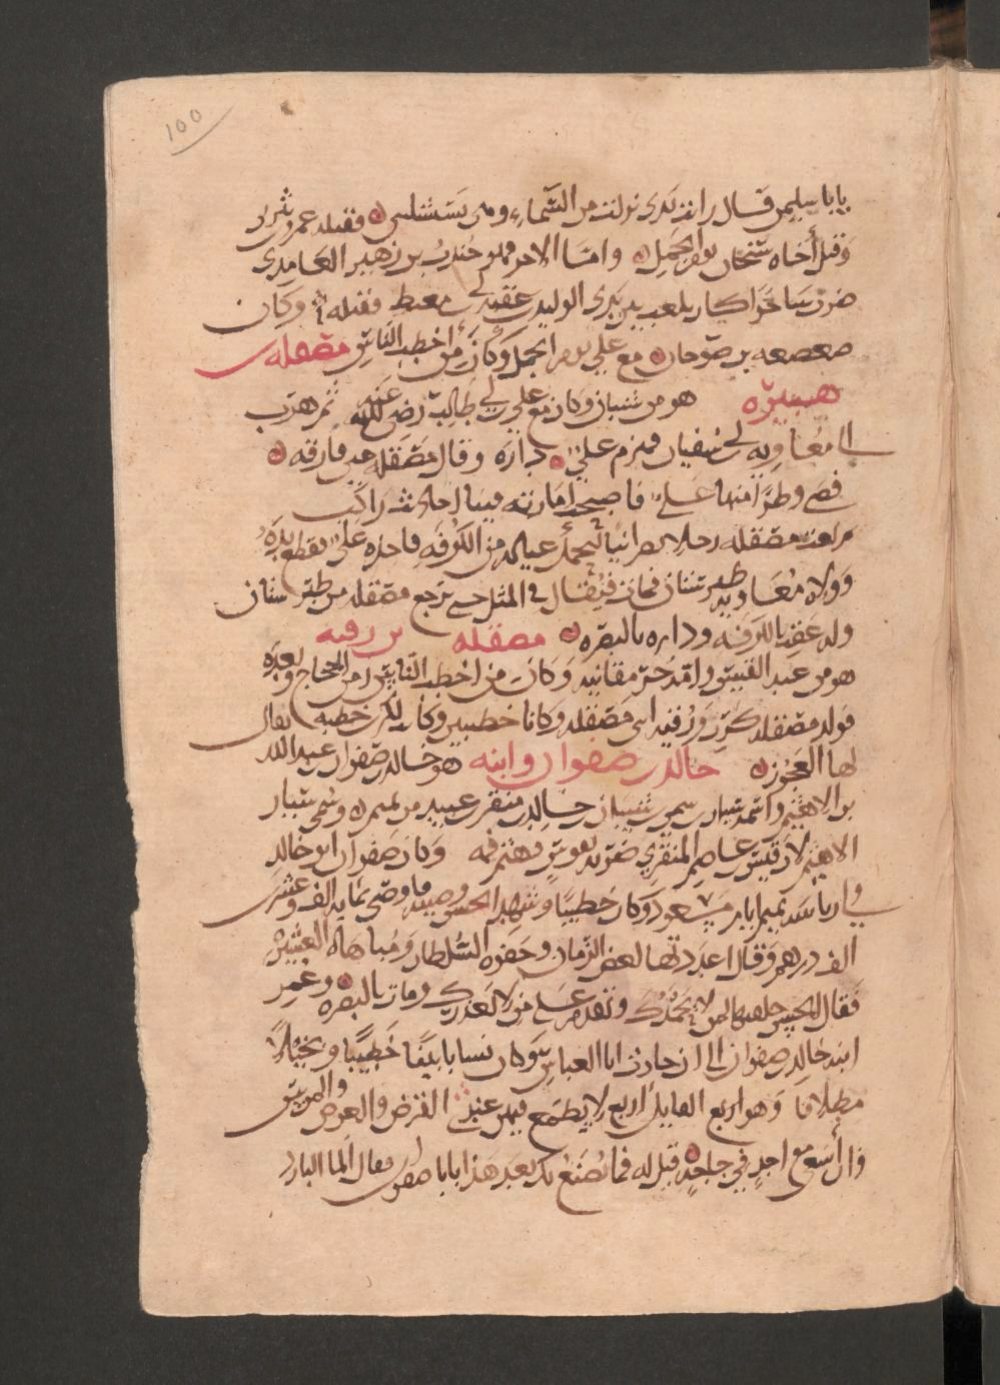 100
يابا سليمن قال رانت يدي نزلت من السماء وهي تستشلني ففتله عمرو بن يثربي
وقتل أخاه سيحان يوم الجمل واما الاخر فهو جندب بن زهير الغامدي
ضرب ساحرا كان يلعب بين يدي الوليد بن عقبه بن ابي معيط فقتله وكان
صعصعه بن صوحان مع علي يوم الجمل وكان من اخطب الناس مصقله بن
هبيره هو من شيبان وكان مع علي بن ابي طالب رضي الله عنه ثم هرب
الى معاويه بن ابي سفيان فهدم علي داره وقال مصقله حين فارقه
قضى وطرا منها علي فاصبحت امارته فينا احاديث راكب
مصقله رجلا نصرانيا ليحمل عياله من الكوفه فاخذه علي فقطع يده
وولاه معاويه طبرستان فمات فيقال في المثل حتى يرجع مصقله من طبرستان
وله عقب بالكوفه وداره بالبصره مصقله بن رقبه
هو من عبد القيس وكان من اخطب الناس زمن الحجاج وبعده
فولد مصقله كرز ورقبه ابني مصقله وكانا خطيبين وكان لكرز خطبه يقال
لها العجوز خالد بن صفوان وابنه هو خالد بن صفوان بن عبد الله
بن الاهتم واسمه سنان بن سمي بن سنان بن خالد بن منقر بن عبيد من تميم وسمي سنان
الاهتم لان قيس بن عاصم المنقري ضربه بقوس فهتم فمه وكان صفوان ابو خالد
وكان خطيبا وشهد الحسن وصيته واوصى بمايه الف وعشرين
الف درهم وقال اعددتها لعض الزمان وجفوه السلطان ومباهاه العشيره
فقال الحسن خلفتها لمن لا يحمدك وتقدم على من لا يعذرك ومات بالبصره وعمر
ابنه خالد بن صفوان الى ان حادث ابا العباس وكان نسابا خطيبا
مطلاقا وهو القايل اربع لا يطمع فيهن عندي القرض والعرض والهريس
وان أسعى مع احد في حاجه قيل له فما نصنع بك بعد هذا يابا صفوان فقال الما البارد